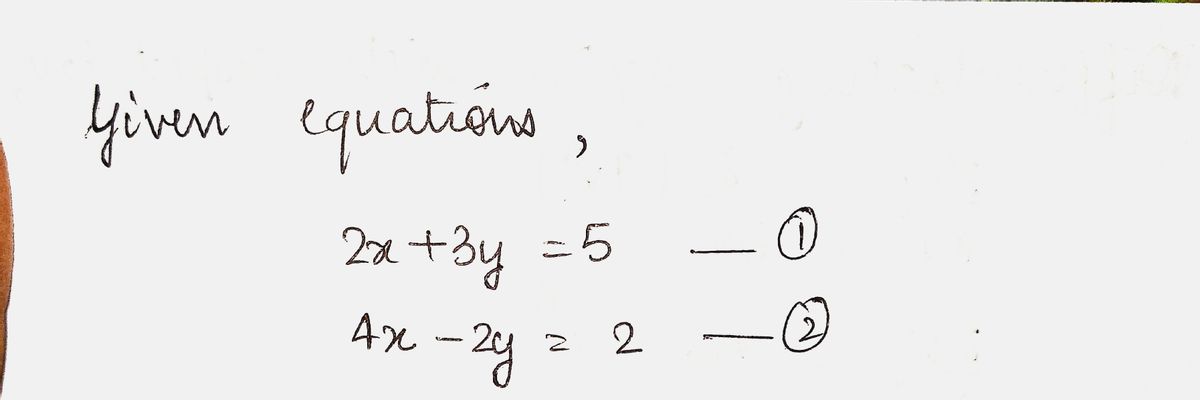 Given equations,
2x + 3y = 5 — ①
4x - 2y = 2 — ②